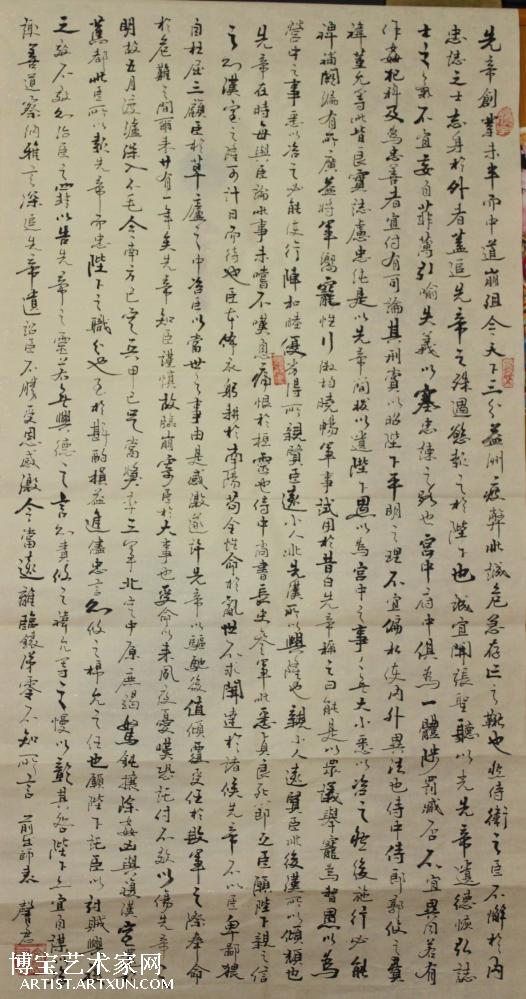 先帝創業未半而中道崩殂今天下三分益洲疲弊此誠危急存亡之秋也然侍衛之臣不懈於內
忠誌之士忘身於外者蓋追先帝之殊遇欲報之於陛下也誠宜開張聖聽以光先帝遺德恢弘誌
士之氣不宜妄自菲薄引喻失義以塞忠諫之路也宮中府中俱為一體陟罰臧否不宜異同若有
作姦犯科及為忠善者宜付有司論其刑賞以昭陛下平明之理不宜偏私使內外異法也侍中侍郎郭攸之費
禕董允等此皆良實誌慮忠純是以先帝簡拔以遺陛下愚以為宮中之事事無大小悉以咨之然後施行必能
裨補闕漏有所廣益將軍嚮寵性行淑均曉暢軍事試用於昔日先帝稱之曰能是以眾議舉寵為督愚以為
營中之事悉以咨之必能使行陣和睦優劣得所親賢臣遠小人此先漢所以興隆也親小人遠賢臣此後漢所以傾頹也
先帝在時每與臣論此事未嘗不嘆息痛恨於桓靈也侍中尚書長史參軍此悉貞良死節之臣願陛下親之信
之則漢室之隆可計日而待也臣本佈衣躬耕於南陽苟全性命於亂世不求聞達於諸侯先帝不以臣卑鄙猥
自枉屈三顧臣於草廬之中咨臣以當世之事由是感激遂許先帝以驅馳後值傾覆受任於敗軍之際奉命
於危難之間爾來廿有一年矣先帝知臣謹慎故臨崩寄臣以大事也受命以來夙夜憂嘆恐託付不效以傷先帝之
明故五月渡瀘深入不毛今南方已定兵甲已足當獎率三軍北定中原庶竭駑鈍攘除姦凶興復漢室
舊都此臣所以報先帝而忠陛下之職分也至於斟酌損益進儘忠言則攸之禕允之任也願陛下託臣以討賊興
之效不效則治臣之罪以告先帝之靈若無興德之言則責攸之禕允等之慢以彰其咎陛下亦宜自謀以
諏善道察納雅言深追先帝遺詔臣不勝受恩感激今當遠離臨錶涕零不知所言 前出師表
博宝艺术家网
ARTIST.ARTXUN.COM